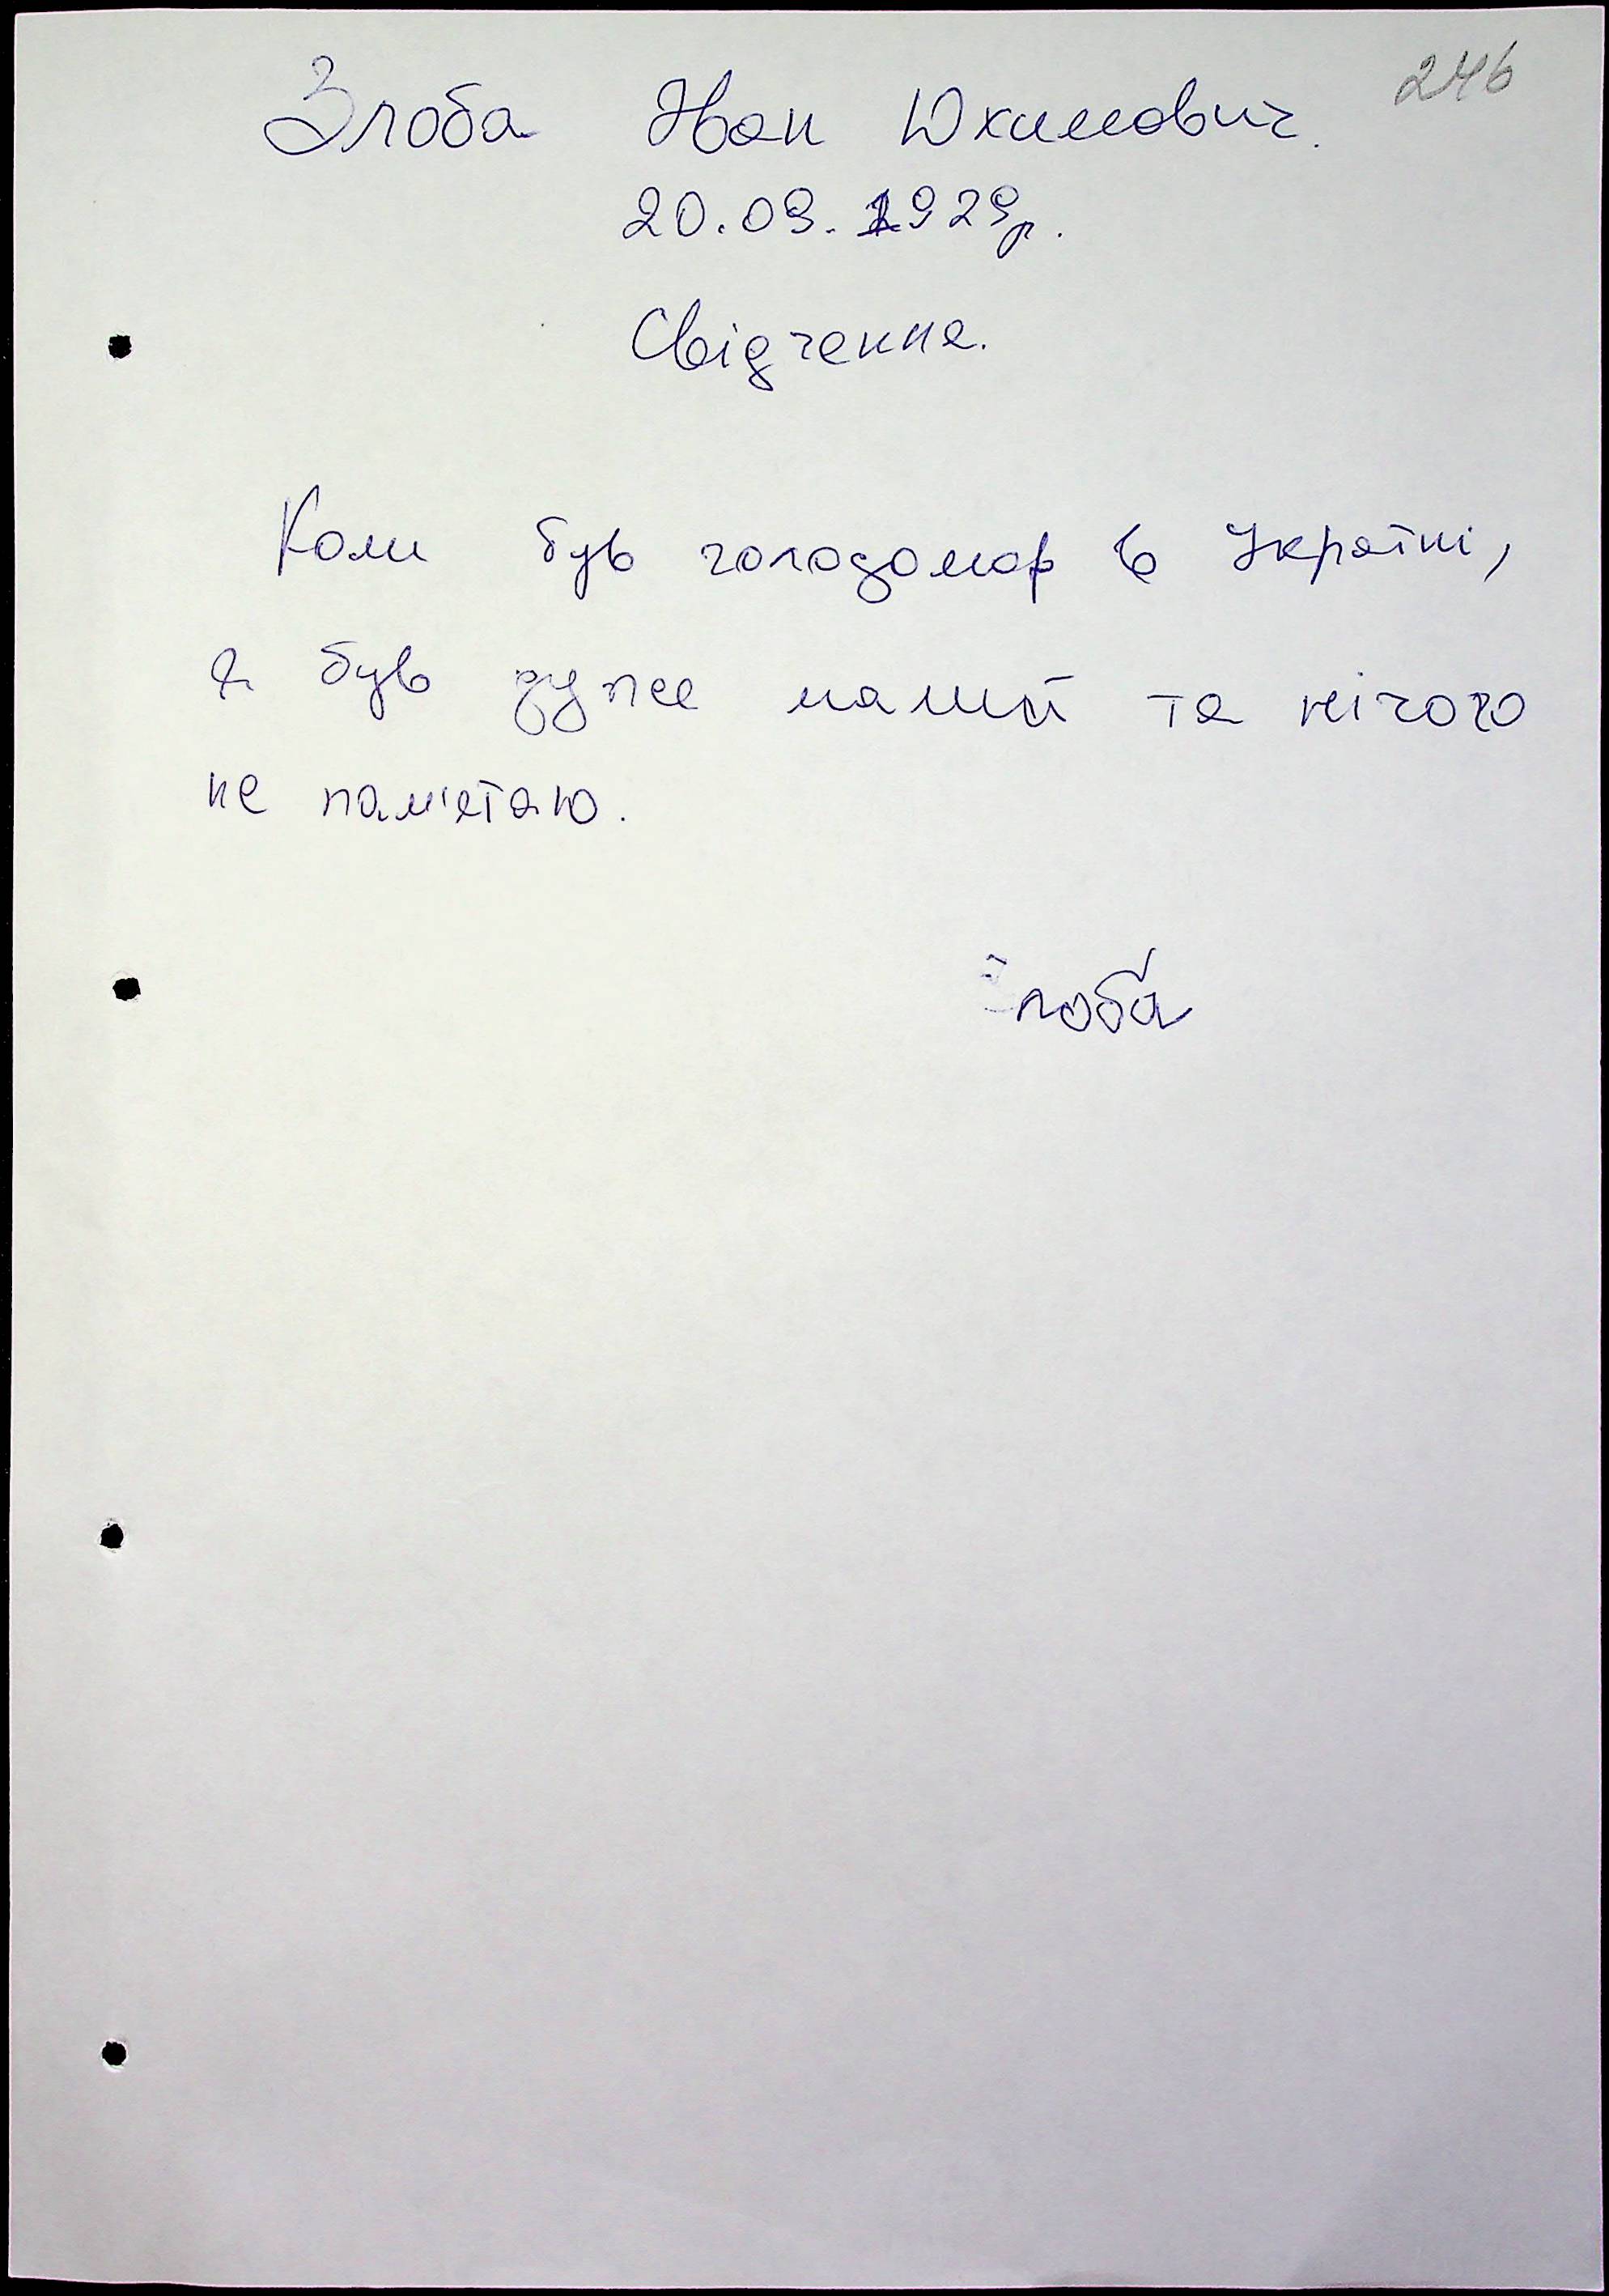 246
Злоба Іван Юхимович.
20.09.1929р.
Свідчення.
Коли був голодомор в Україні,
я був дуже малий та нічого
не пам'ятаю.
Злоба